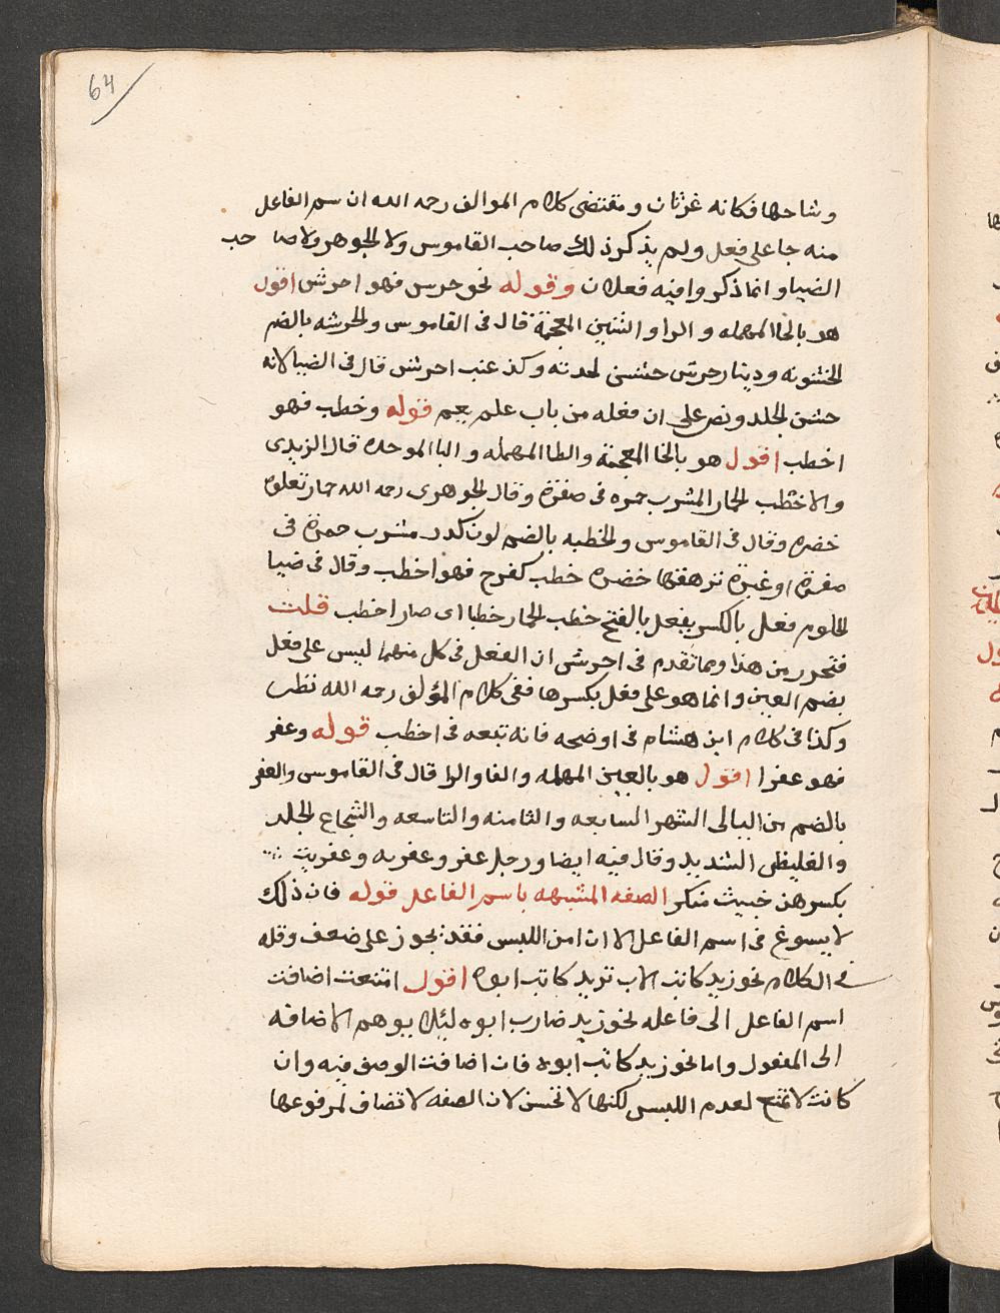 64
وشاحها فكانه غرثان ومقتضى كلام الموالف رحمه الله ان سم الفاعل
منه جا على فعل ولم يذكر ذلك صاحب القاموس ولا الجوهر ولا صا حب
الضيا وانما ذكروا فيه فعلان وقوله نحو حرس فهو احرش اقول
هو بالحا المهمله والرا والشين المعجمة قال في القاموس والحرشه بالضم
الخشونه ودينار حرش خشن لحدته وكذ عنب احرش قال في الضيا لانه
خشن الجلد ونص على ان فعله من باب علم يعم قوله وخطب فهو
اخطب اقول هو بالخا المعجمة والطا المهمله والبا الموحده قال الزبدى
والاخطب الحمار المشرب حمره فى صفرة وقال الجوهرى رحمه الله حمار تعلوه
خضره وقال فى القاموس والخطبه بالضم لون كدر مشرب حمرة فى
صفرة او غبرة ترهقها خضره خطب كفرح فهو اخطب وقال فى ضيا
الحلوم فعل بالكسر يفعل بالفتح خطب الحمار خطبا اى صار اخطب قلت
فتحرر من هذا ومما تقدم فى احرش ان الفعل فى كل منهما ليس على فعل
بضم العين وانما هو على فعل بكسرها ففى كلام المؤلف رحمه الله نظر
وكذا فى كلام ابن هشام فى اوضحه فانه تبعه فى اخطب قوله وعفر
فهو عفرا اقول هو بالعين المهمله والفا والرا قال فى القاموس والعفر
بالضم من اليالى الشهر السابعه والثامنه والتاسعه والشجاع الجلد
والغليظ الشديد وقال فيه ايضا ورجل عفر وعفريه وعفريت
بكسرهن خبيث منكر الصفه المشبهه باسم الفاعل قوله فان ذلك
لا يسوغ فى اسم الفاعل الا ان امن اللبس فقد يجوز على ضعف وقله
فى الكلام نحو زيد كاتب الاب تريد كاتب ابوه اقول امتنعت اضافت
اسم الفاعل الى فاعله نحو زيد ضارب ابوه ليلا يوهم الاضافه
الى المفعول واما نحو زيد كاتب ابوه فان اضافت الوصف فيه وان
كانت لا تمتنع لعدم اللبس لكنها لا تحسن لان الصفه لا تضاف لمرفوعها